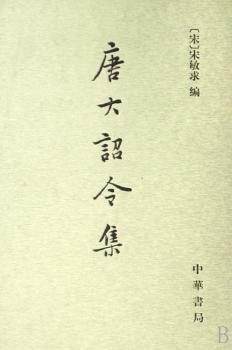 [宋]宋敏求 编
唐大詔令集
中華書局
B